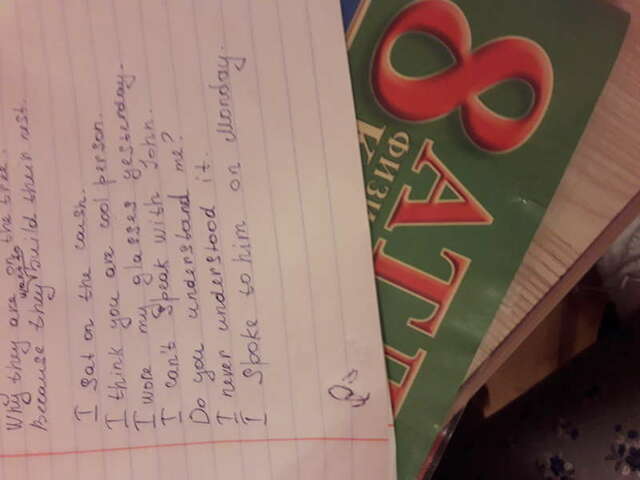 Why they are on the tree.
want to
Because they build their nest.
I sat on the coush.
I think you are cool person.
I wore my glasses yesterday.
I can't speak with John.
Do you understand me?
I never understood it.
I spoke to him on Monday.
8
АТЛ
ФИЗИ
К